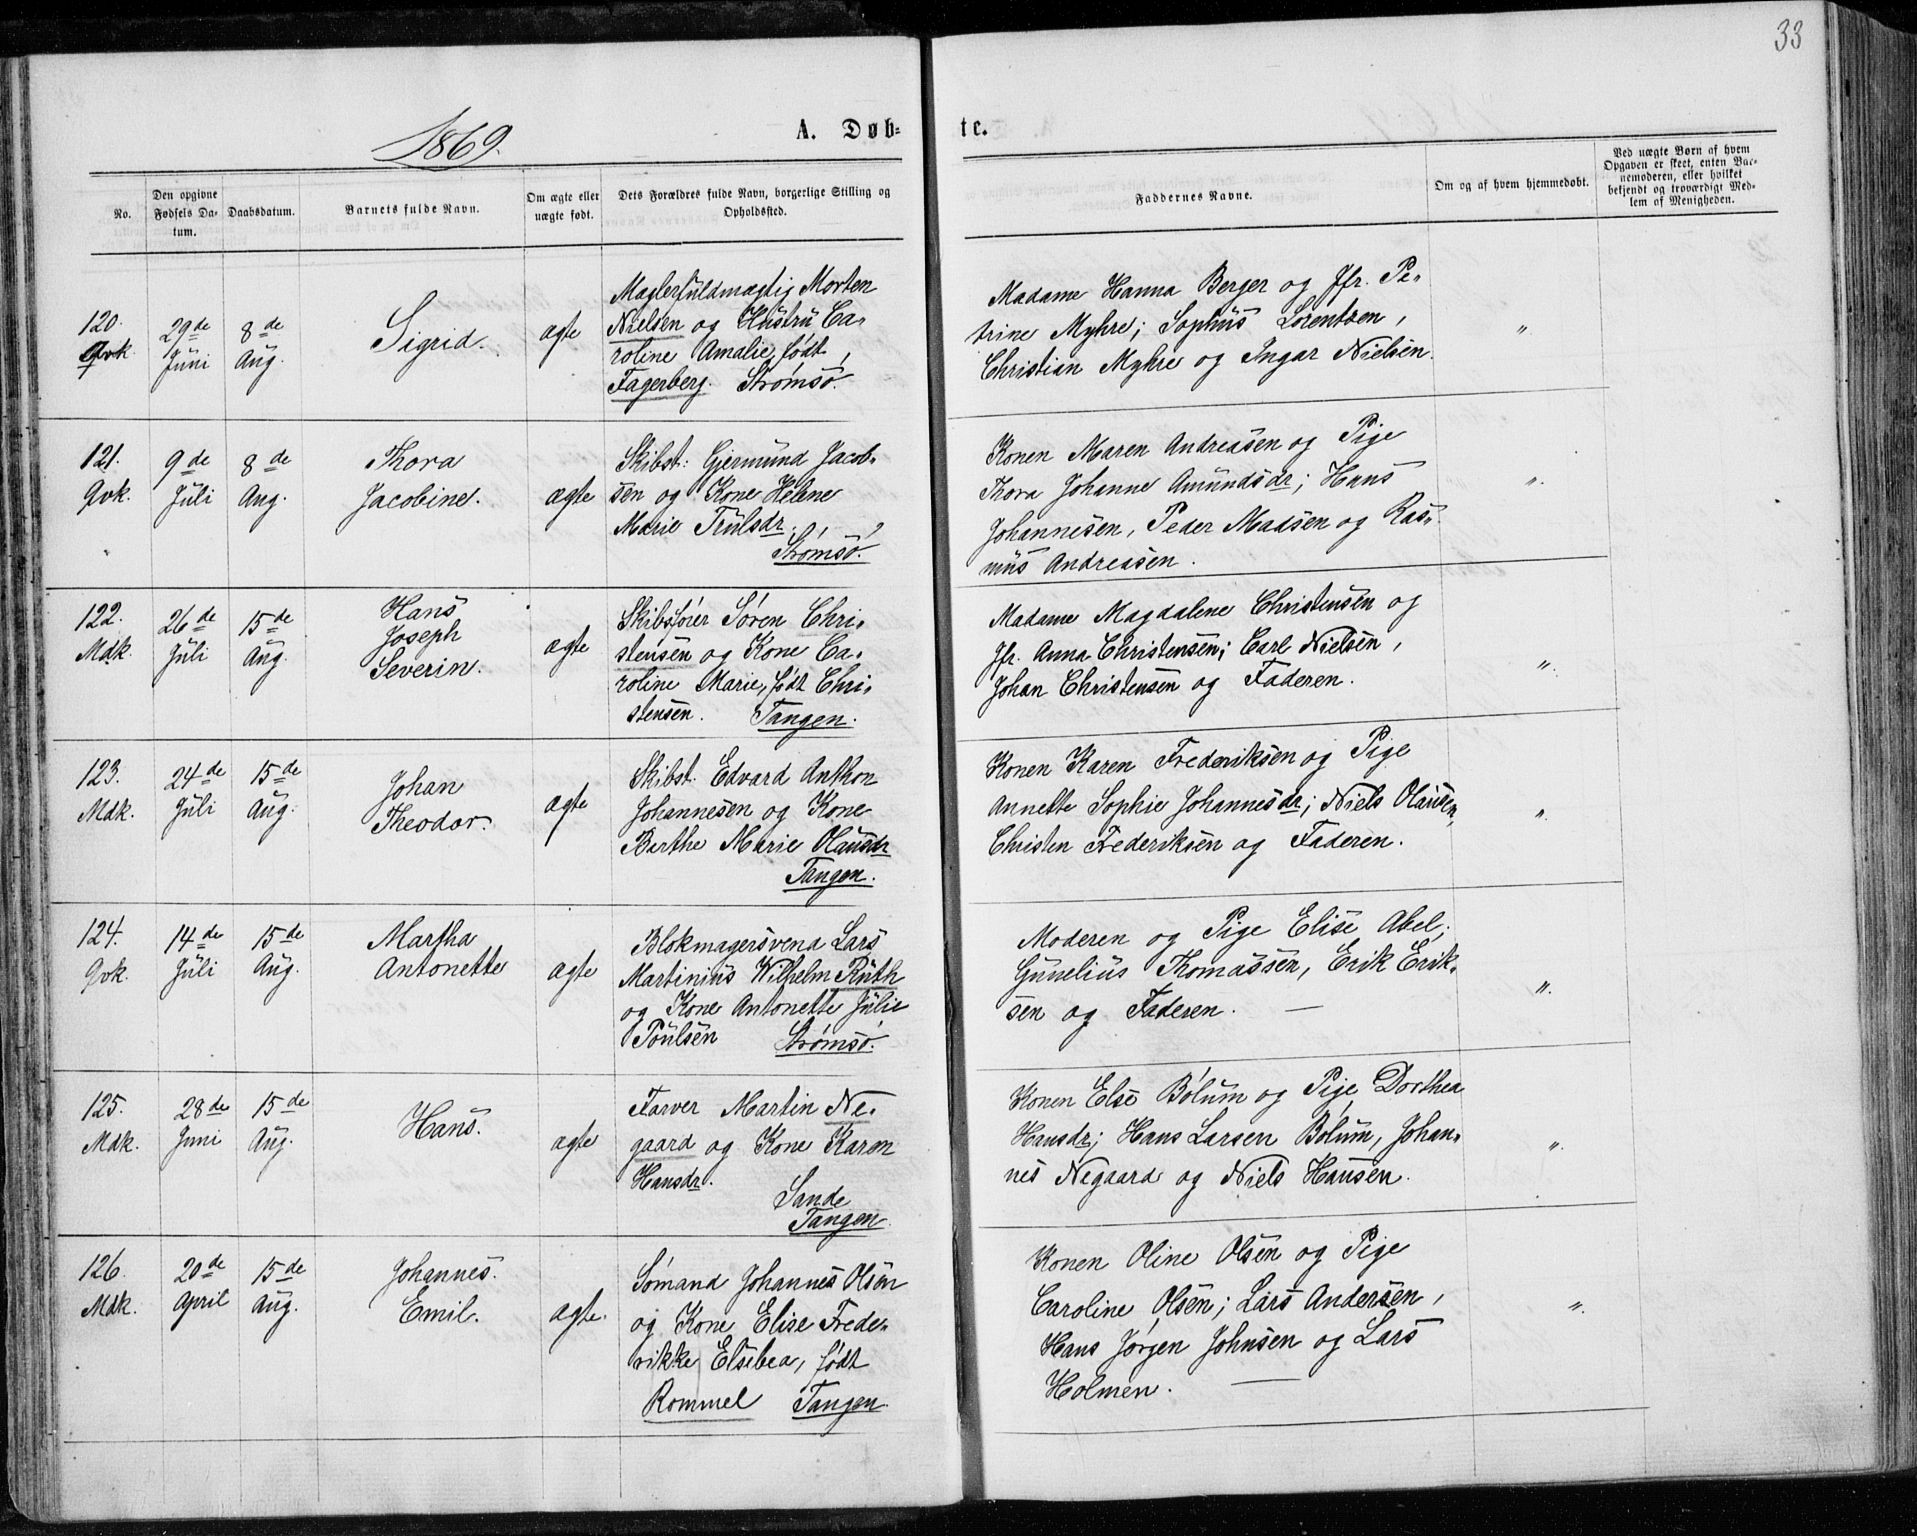 33
1869.
A. Døb-
te.
No.
Den opgivne Fødsels Da-
tum.
Daabsdatum.
Barnets fulde Navn.
Om ægte eller
uægte født.
Dets Forældres fulde Navn, borgerlige Stilling og
Opholdssted.
Faddernes Navne.
Om og af hvem hjemmedøbt.
Ved uægte Børn af hvem
Opgaven er skeet, enten Bar-
nemoderen, eller hvilket
bekjendt og troværdigt Med-
lem af Menigheden.
120.
Qvk.
29de
Juni
8de
Aug.
Sigrid.
ægte
Mæglerfuldmægtig Morten
Nielsen og Hustru Ca-
roline Amalie, født
Fagerberg. Strømsø.
Madame Hanna Berger og Jfr. Pe-
trine Myhre; Sophus Lorentzen,
Christian Myhre og Ingar Nielsen.
"
121.
Qvk.
9de
Juli
8de
Aug.
Thora
Jacobine.
ægte
Skibst: Gjermund Jacob-
sen og Kone Helene
Marie Trulsdr.
Strømsø.
Konen Maren Andreasen og Pige
Thora Johanne Amundsdr; Hans
Johannesen, Peder Madsen og Ras-
mus Andreasen.
"
122.
Mdk.
26de
Juli
15de
Aug.
Hans
Joseph
Severin.
ægte
Skibsfører Søren Chri-
stensen og Kone Ca-
roline Marie, født Chri-
stensen. Tangen.
Madame Magdalene Christensen og
Jfr. Anna Christensen; Carl Nielsen,
Johan Christensen og Faderen.
"
123.
Mdk.
24de
Juli
15de
Aug.
Johan
Theodor.
ægte
Skibst. Edvard Anthon
Johannesen og Kone
Berthe Marie Olausdr
Tangen.
Konen Karen Frederiksen og Pige
Annette Sophie Johannesdr; Niels Olausen,
Christen Frederiksen og Faderen.
"
124.
Qvk.
14de
Juli
15de
Aug.
Martha
Antonette
ægte
Blokmagersvend Lars
Martinius Wilhelm Ruth
og Kone Antonette Julie
Poulsen Strømsø.
Moderen og Pige Elise Abel;
Gunelius Thomassen, Erik Erik-
sen og Faderen. —
"
125.
Mdk.
28de
Juni
15de
Aug.
Hans.
ægte
Farver Martin Ne-
gaard og Kone Karen
Hansdr.
Sande
Tangen
Konen Else Bølum og Pige Dorthea
Hansdr; Hans Larsen Bølum, Johan-
nes Negaard og Niels Hansen.
"
126.
Mdk.
20de
April
15de
Aug.
Johannes.
Emil.
ægte.
Sømand Johannes Olsen
og Kone Elise Frede-
rikke Elsebea, født
Rommel Tangen.
Konen Oline Olsen og Pige
Caroline Olsen; Lars Andersen,
Hans Jørgen Johnsen og Lars
Holmen. —
"